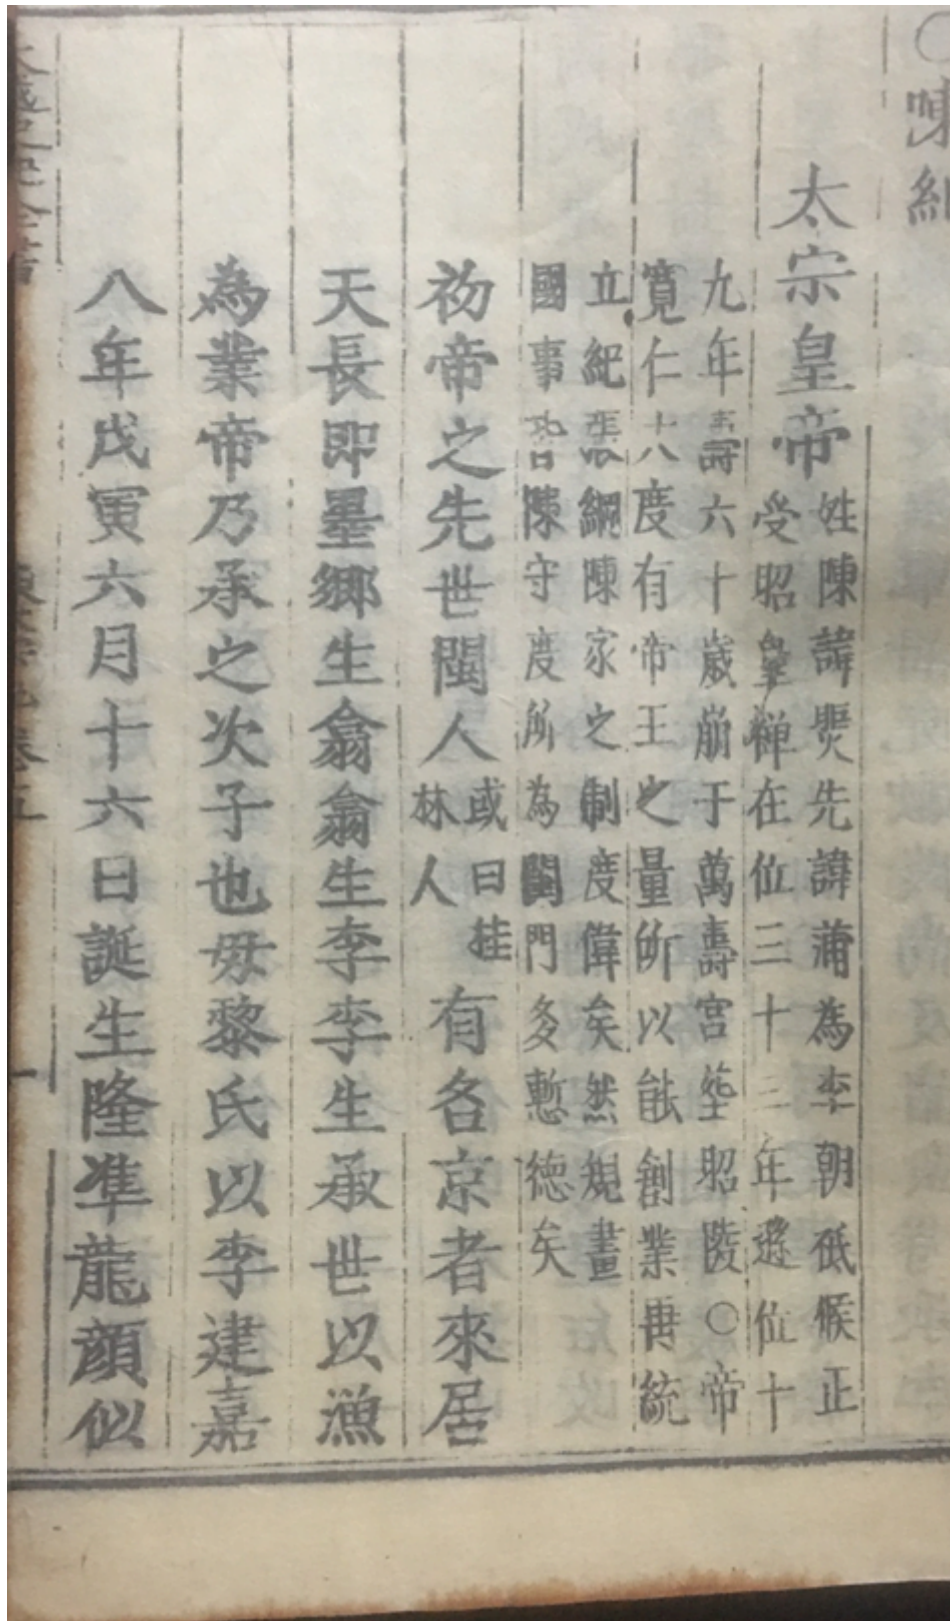 ○陳紀
太宗皇帝
姓陳諱煚先諱蒲為李朝祇候正
受昭皇禅在位三十三年遜位十
九年壽六十歲崩于萬壽宮葬昭陵○帝
寬仁大度有帝王之量所以能創業垂統
立紀張綱陳家之制度偉矣然規畫
國事皆陳守度所為閨門多慙德矣
初帝之先世閩人
或曰桂
林人
有名京者來居
天長即墨鄉生翕翕生李李生承世以漁
為業帝乃承之次子也母黎氏以李建嘉
八年戊寅六月十六日誕生隆準龍顏似
大越史記全書
卷五
一